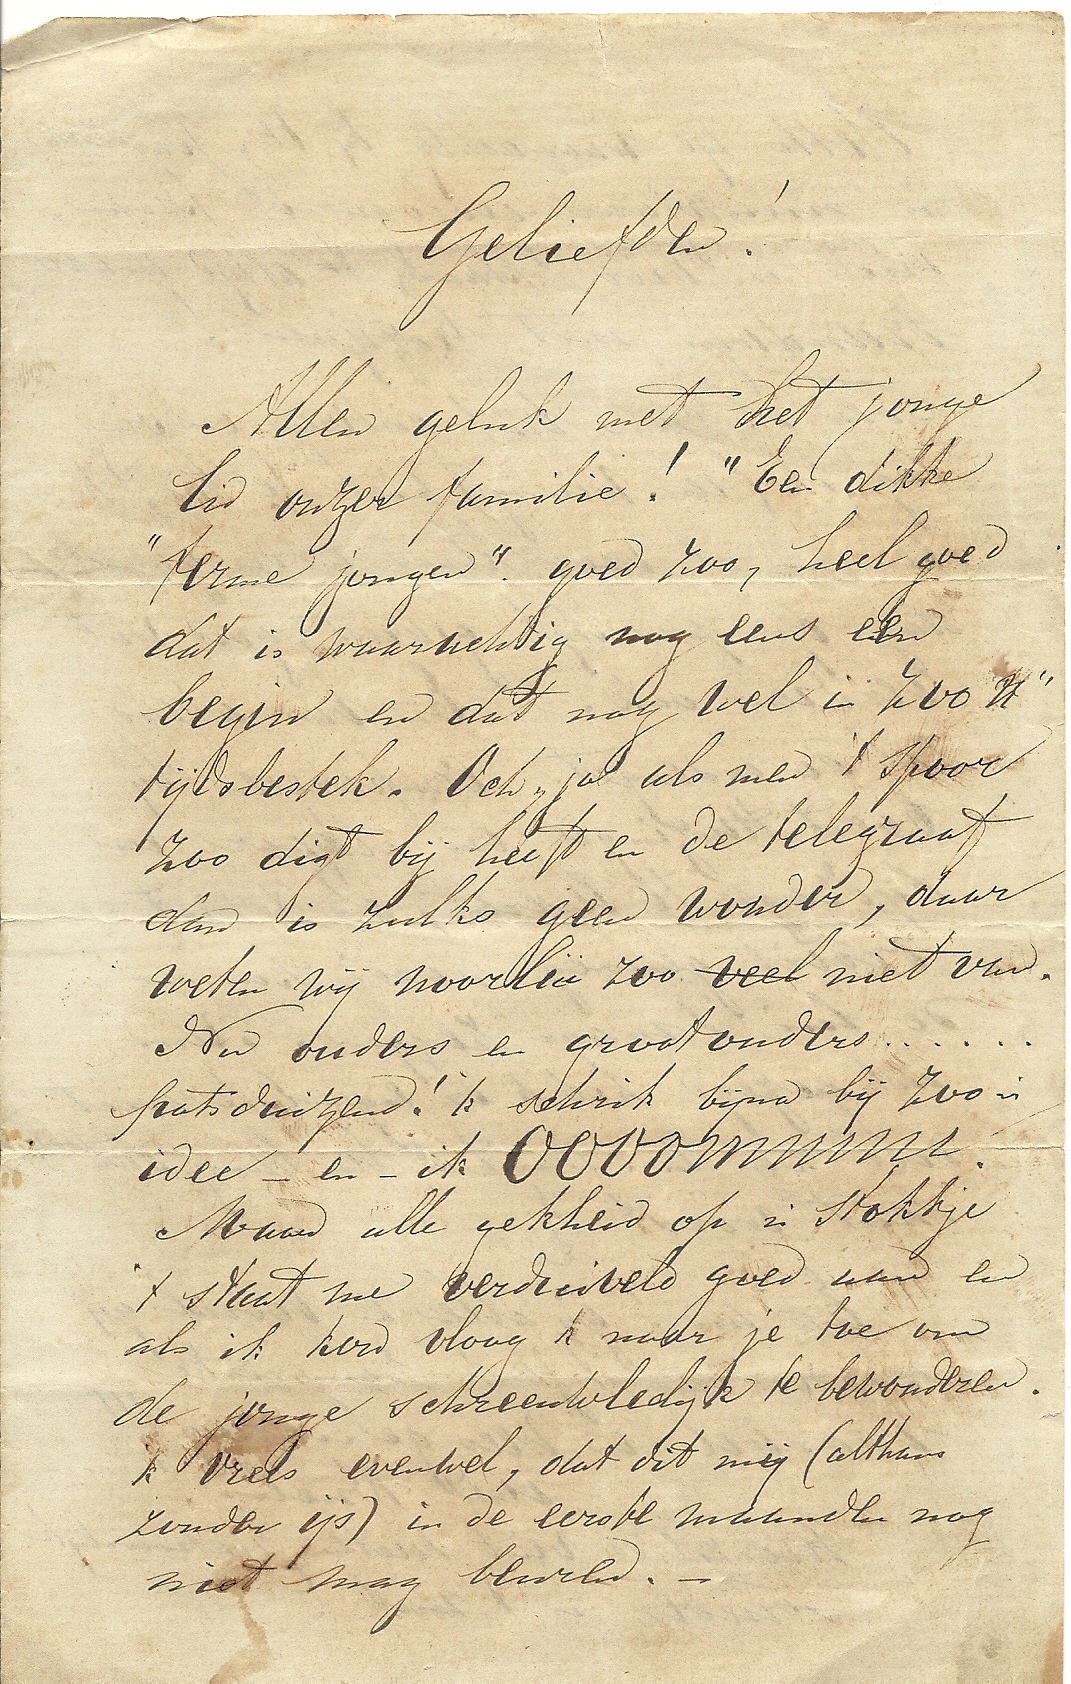 Geliefden!
Allen geluk met het jonge
lid onzer familie! "Een dikke
"ferme jongen". goed zoo, heel goed
dat is waarachtig nog eens een
begin en dat nog wel in zoo n"
tijdsbestek. Och, ja als men 't spoor
zoo digt bij heeft en de telegraaf
dan is zulks geen wonder, daar
weten wij noorlui zoo veel niet van.
Nu ouders en grootouders......
potsduizend! 'k schrik bijna bij zoo n
idee - en - ik OOOOmmmm.
Maar alle gekheid op 'n stokkje
't staat me verduiveld goed aan en
als ik kon vloog 'k naar je toe om
de jonge schreeuwledijk te bewonderen.
'k vrees evenwel, dat dit mij (althans
zonder ijs) in de eerste maanden nog
niet mag beuren. -